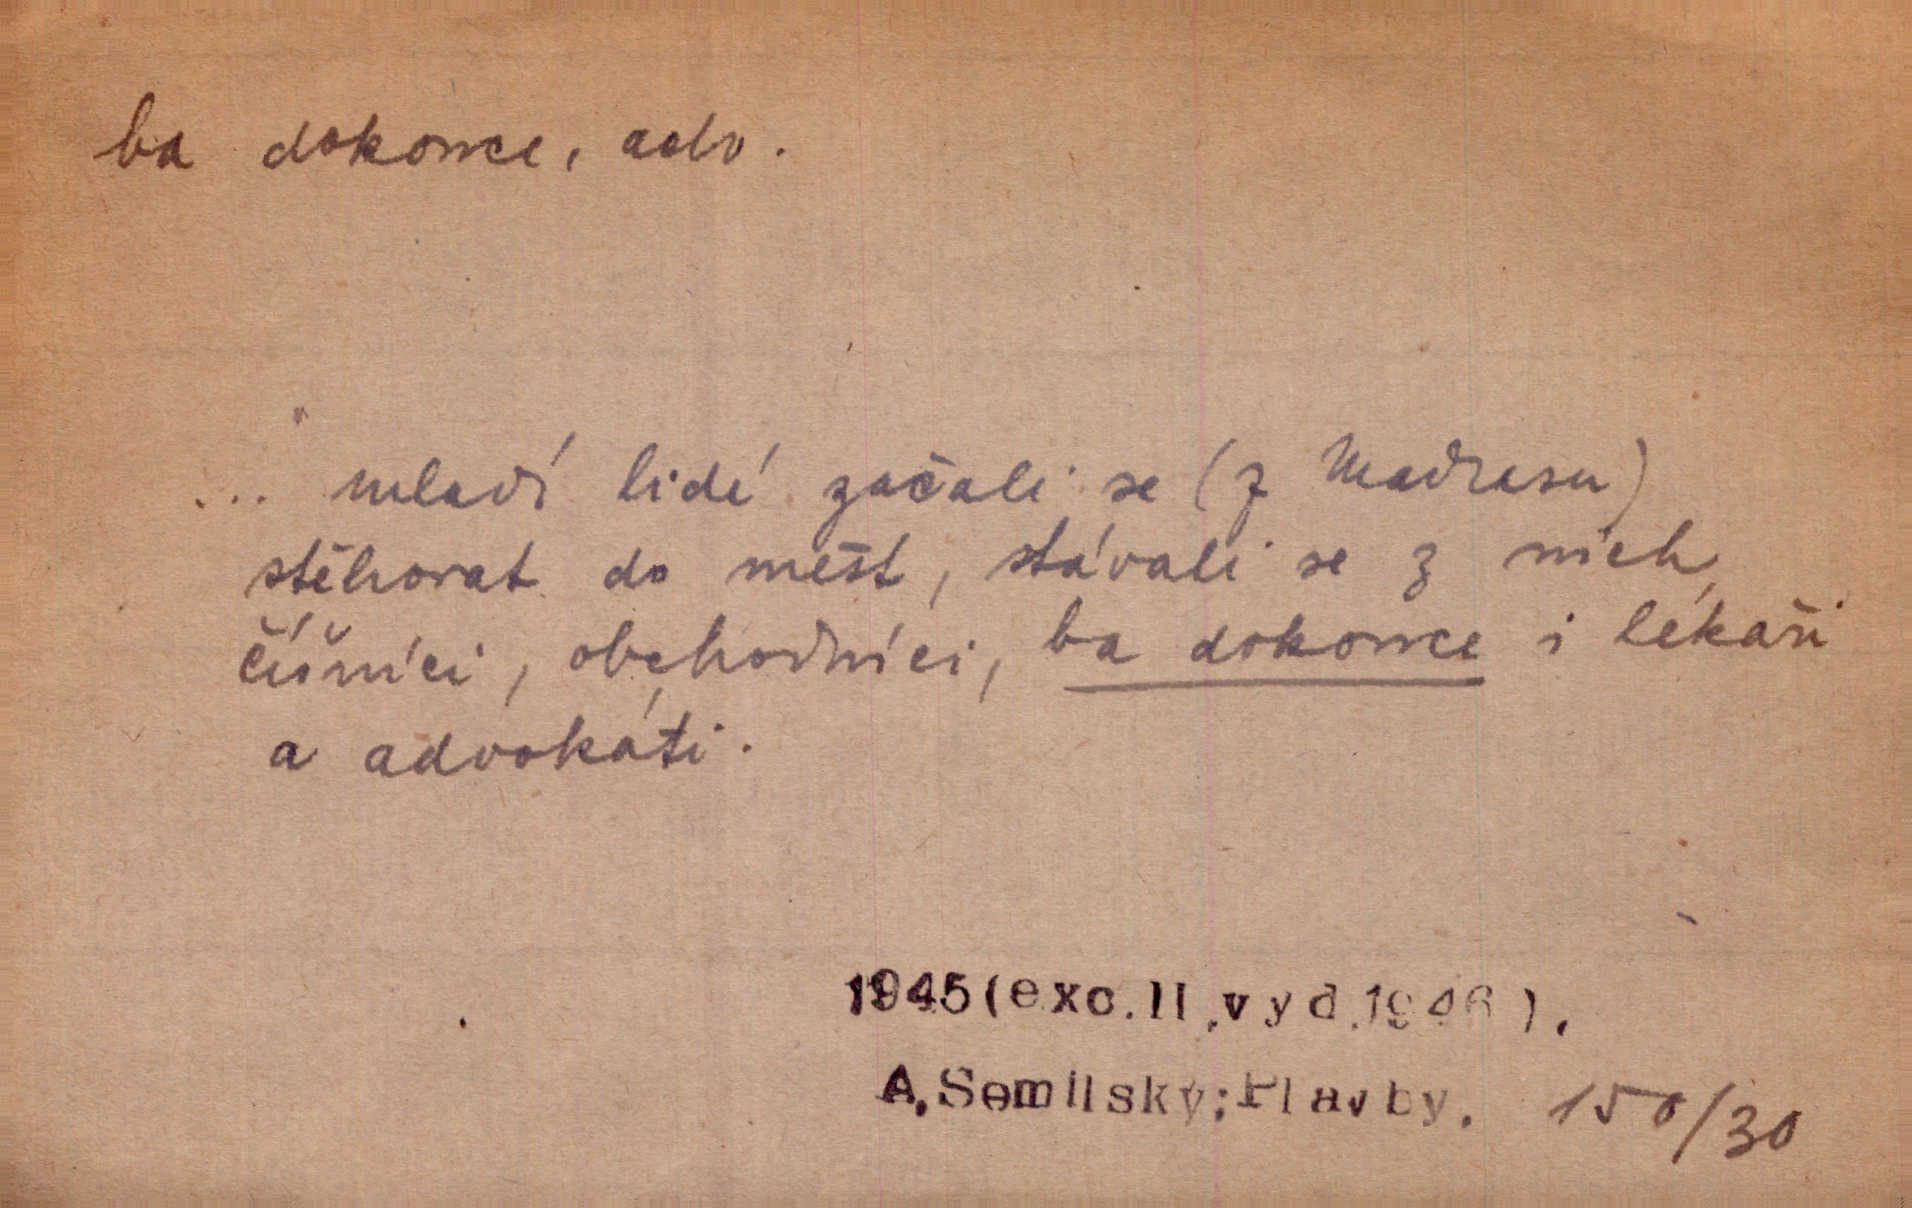 ba dokonce, adv.
... mladí lidé začali se (z Madrasu)
stěhovat do měst, stávali se z nich
číšníci, obchodníci, ba dokonce i lékaři
a advokáti.
1945(exc.II.vyd.1946).
A.Semilský:Plavby. 150/30